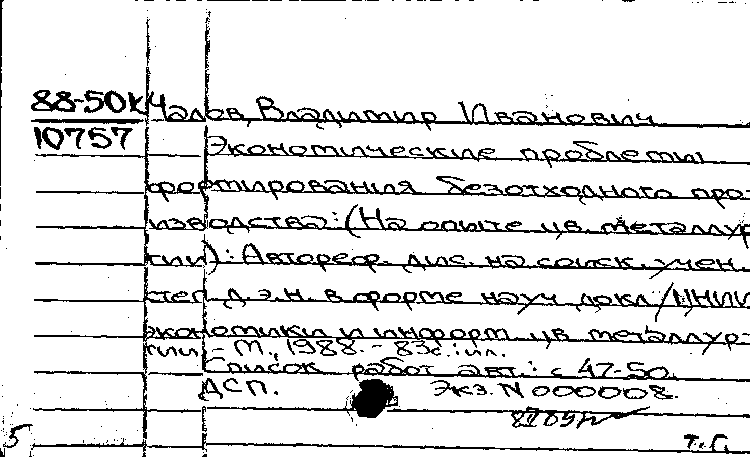 88-50к Чалов, Владимир Иванович
10757
Экономические проблемы
формирования безотходного про-
изводства: (На опыте цв. металлур
гии): Автореф. дис. на соиск. учен.
степ. д. э. н. в форме науч. докл / ЦНИИ
экономики и информ. цв. металлур-
гии. - М., 1988. - 83с.: ил.
Список работ авт.: с 47-50.
ДСП. Экз. N 000008.
5 т.г.